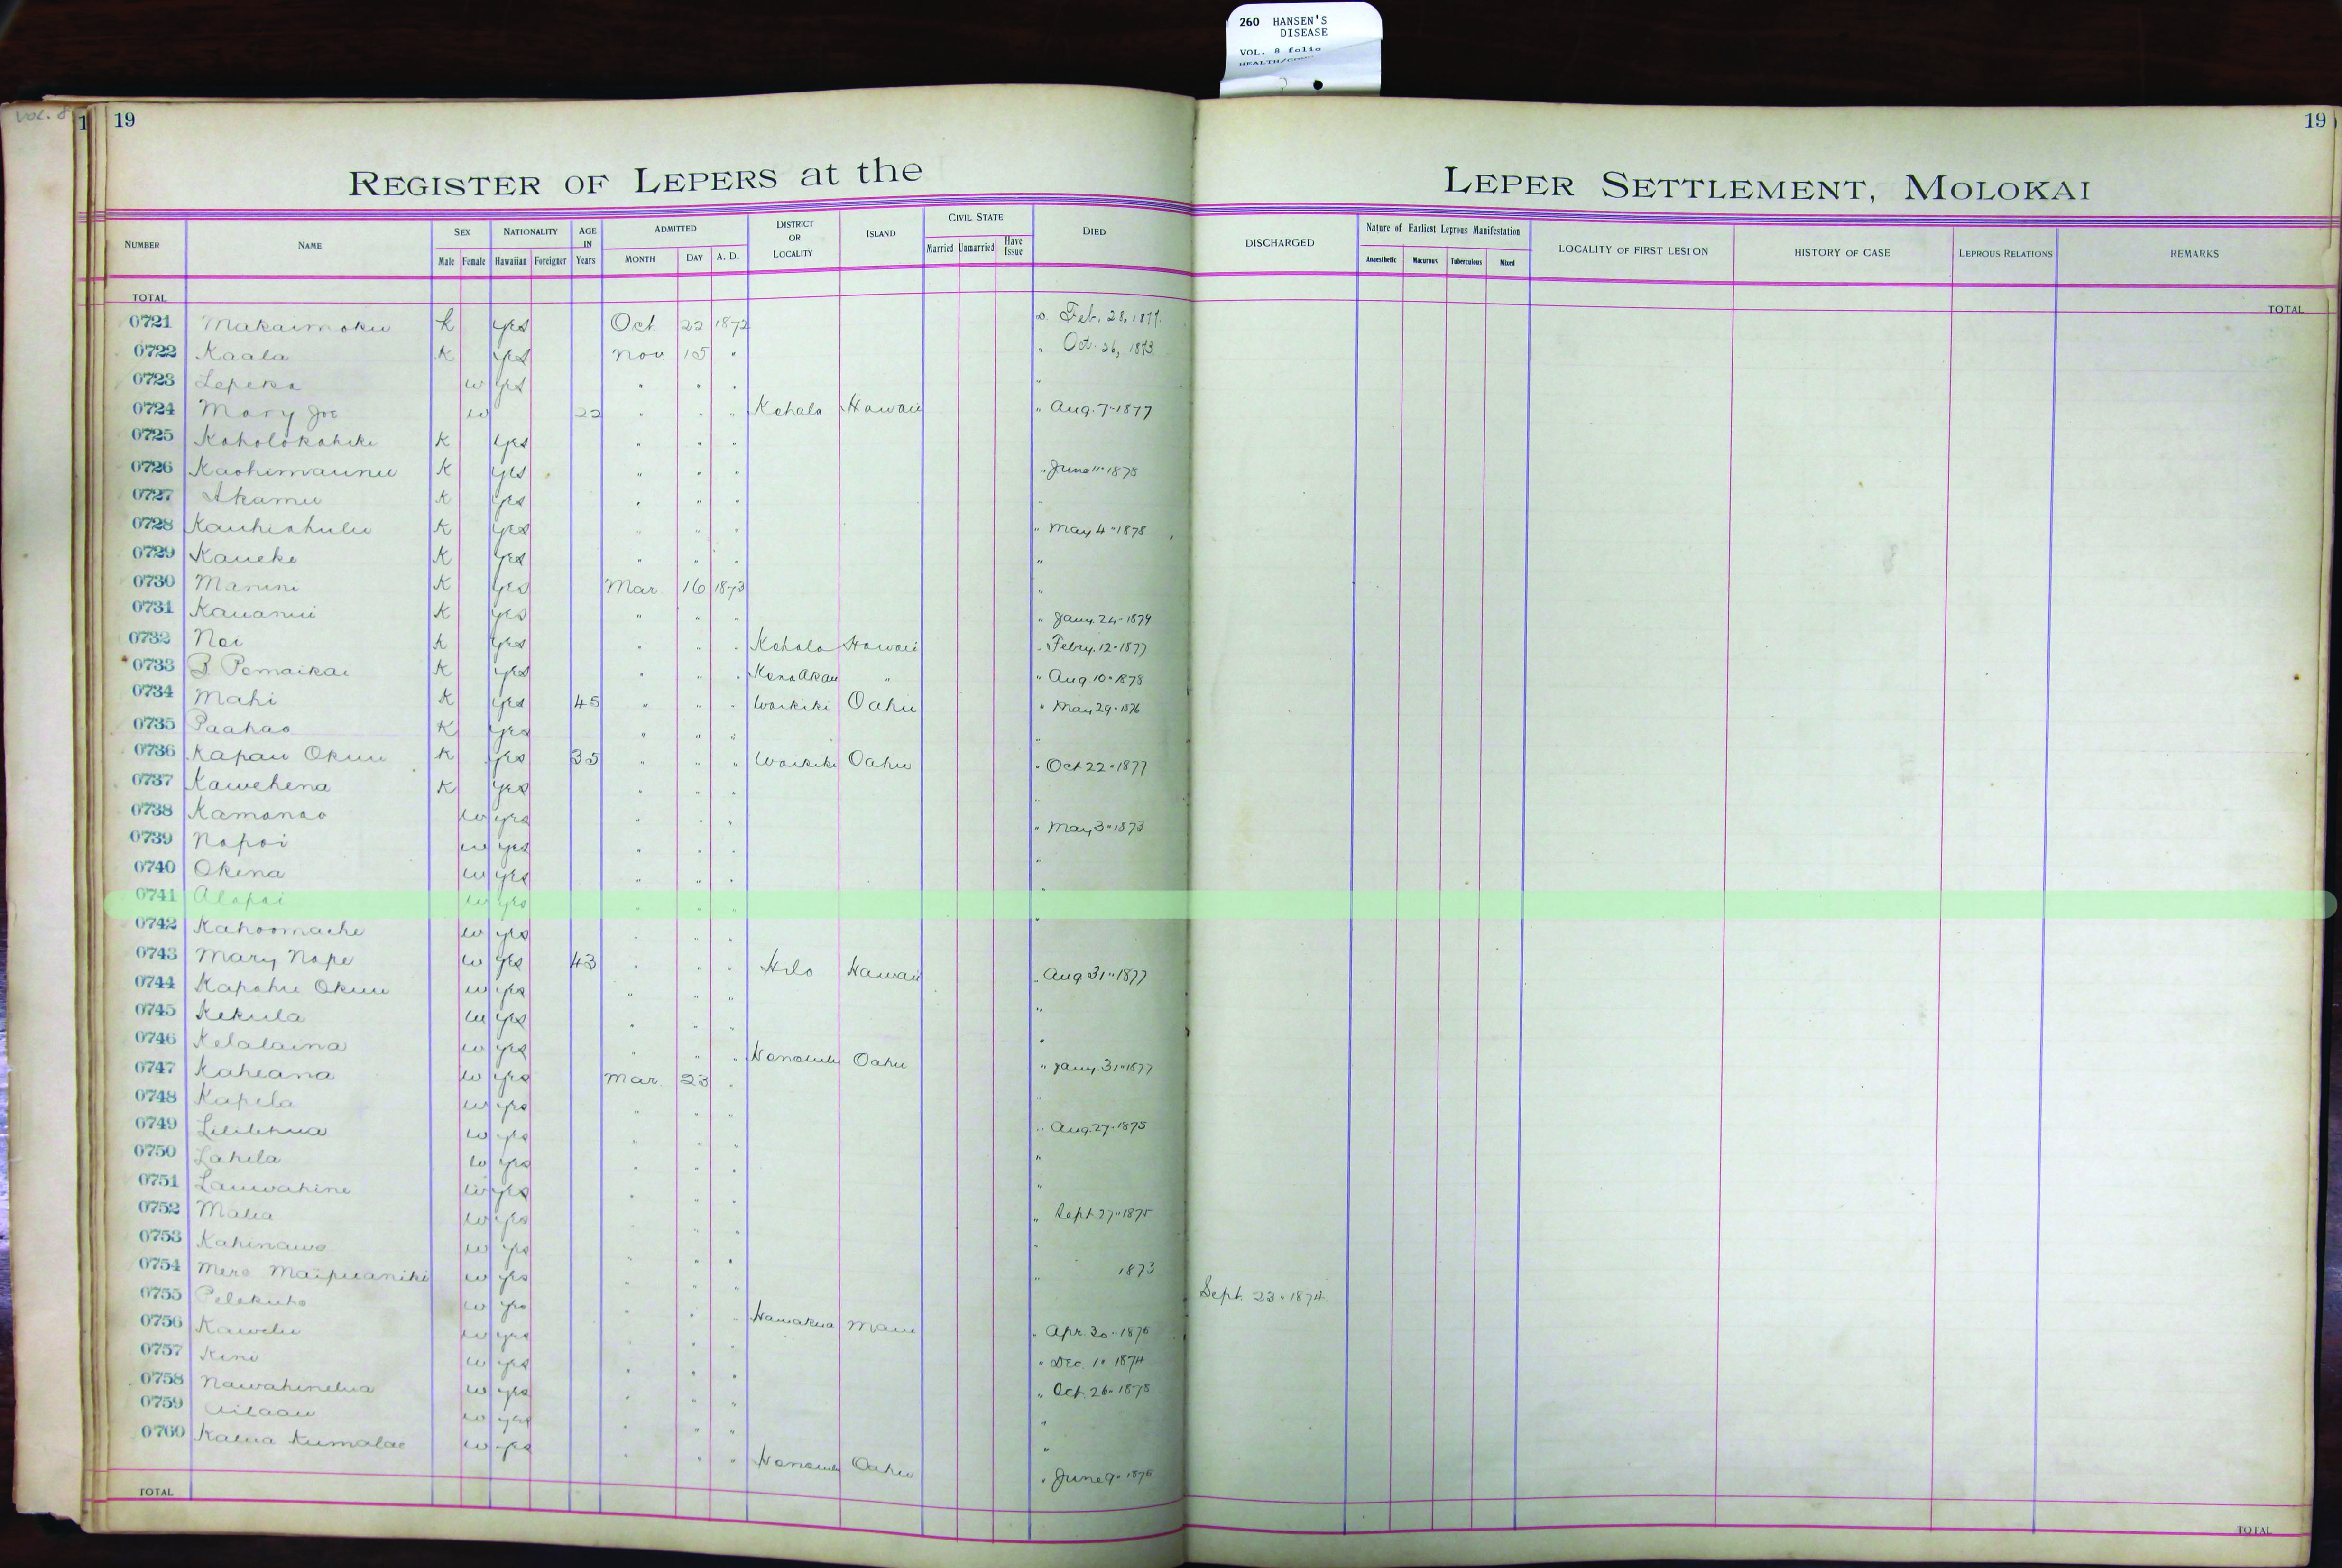 260 HANSEN'S
DISEASE
VOL. 8 folio
VOL. 8
1
19
19
REGISTER OF LEPERS at the LEPER SETTLEMENT, MOLOKAI
NUMBER NAME SEX NATIONALITY AGE IN Years ADMITTED DISTRICT OR LOCALITY ISLAND CIVIL STATE DIED DISCHARGED Nature of Earliest Leprous Manifestation LOCALITY OF FIRST LESION HISTORY OF CASE LEPROUS RELATIONS REMARKS
Male Female Hawaiian Foreigner MONTH DAY A. D. Married Unmarried Have Issue Anaesthetic Macurous Tuberculous Mixed
TOTAL TOTAL
0721 Makaimoku k yes Oct 22 1872 Feb. 28, 1877.
0722 Kaala K yes Nov 15 " " Oct. 26, 1873.
0723 Lepeka w yes " " " "
0724 Mary Joe w 22 " " " Kohala Hawaii " Aug. 7 " 1877
0725 Koholokahiki K yes " " "
0726 Kaohimaunu K yes " " " " June 11 " 1878
0727 Akamu K yes " " " "
0728 Kauhiahulu K yes " " " " May 4 " 1878
0729 Kaueke K yes " " " "
0730 Manini K yes Mar 16 1873 "
0731 Kauanui K yes " " " " Jany. 24 " 1879
0732 Noi K yes " " " Kohala Hawaii " Febry. 12 " 1877
0733 B Pomaikai K yes " " " Kona Akau " " Aug 10 " 1878
0734 Mahi K yes 45 " " " Waikiki Oahu " May 29 " 1876
0735 Paahao K yes " " " "
0736 Kapau Okuu K yes 35 " " " Waikiki Oahu " Oct 22 " 1877
0737 Kawehena K yes " " " "
0738 Kamanao w yes " " " " May 3 " 1873
0739 Napoi w yes " " " "
0740 Okina w yes " " " "
0741 Alapai w yes " " " "
0742 Kahoomaehe w yes " " "
0743 Mary Nape w yes 43 " " " Hilo Hawaii " Aug 31 " 1877
0744 Kapahu Okuu w yes " " " "
0745 Kekula w yes " " " "
0746 Kelalaina w yes " " " Honolulu Oahu " Jany. 31 " 1877
0747 Kaheana w yes Mar. 23 " "
0748 Kapela w yes " " " " Aug. 27 " 1875
0749 Lililehua w yes " " " "
0750 Lahela w yes " " " "
0751 Lauwahine w yes " " " " Sept 27 " 1875
0752 Malia w yes " " " "
0753 Kahinawe w yes " " " " 1873
0754 Mere Maipuaniki w yes " " " Sept. 23 " 1874
0755 Pelekuho w yes " " " Hamakua Maui " Apr. 30 " 1876
0756 Kawelu w yes " " " " Dec. 1 " 1874
0757 Kini w yes " " " " Oct. 26 " 1878
0758 Nawahinelua w yes " " " "
0759 Ailaau w yes " " " "
0760 Kalua Kumalae w yes " " " Honolulu Oahu " June 9 " 1876
TOTAL TOTAL